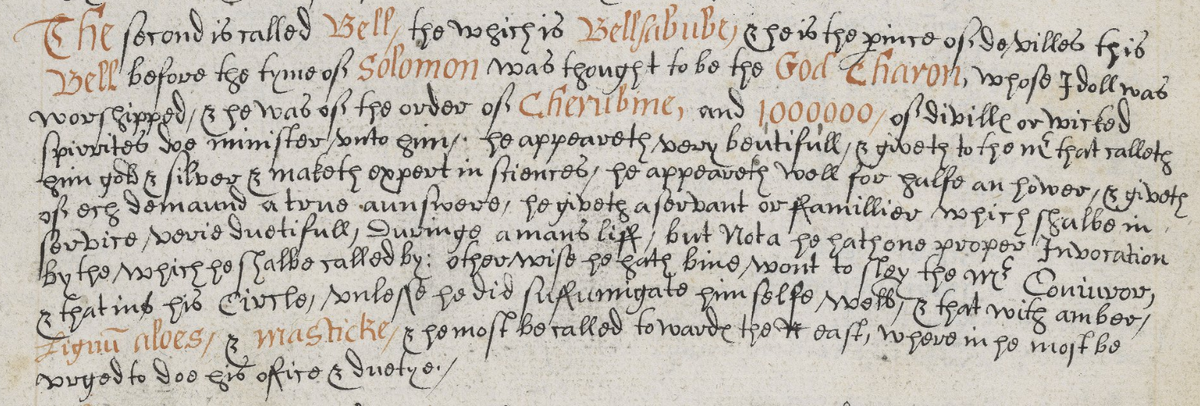 The second is called Bell, the which is Bellsabube, & he is the prince of devilles this
Bell before the tyme of Solomon was thought to be the God Charon, whose Idoll was
worshipped, & he was of the order of Cherubine, and 1000000, of divills or wicked
spirrites doe minister unto him, he appeareth very beutifull, & giveth to the mr that calleth
him gold & silver & maketh expert in sciences, he appeareth well for halfe an hower, & giveth
of ech demaund a true aunswere, he giveth a servant or ffamillier which shalbe in
service, verie duetifull, duringe a mans liff, but Nota he hath one proper Invocation
by the, which he shalbe called by: otherwise he hath bine wont to sley the mr Coniuror,
& that in his Circle, unlesse he did suffumigate him selfe well, & that with amber,
Lignu aloes, & masticke, & he most be called towardes the east, where in he most be
urged to doe his office & duetye.